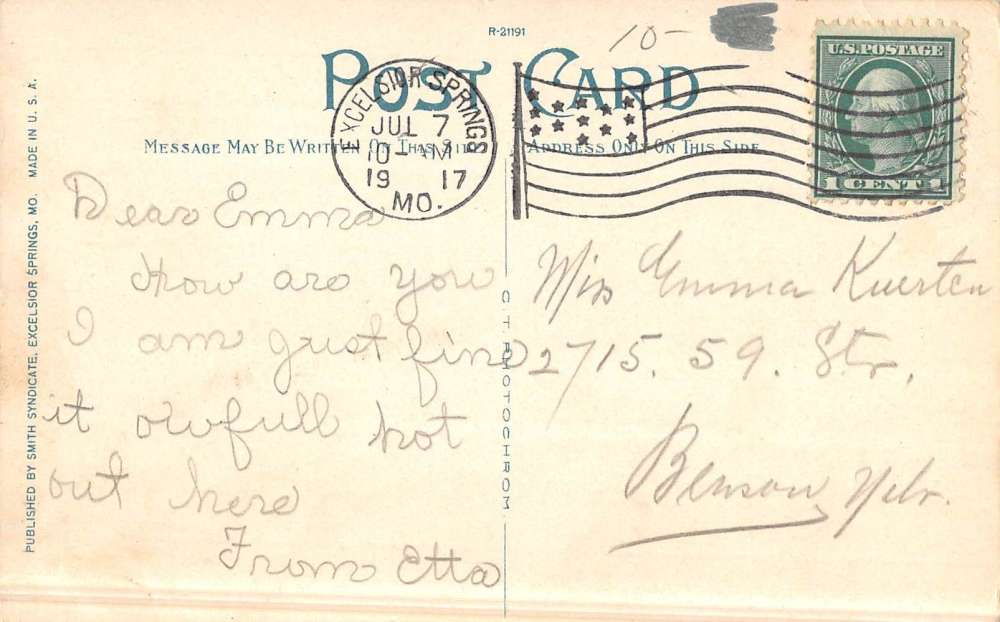 R-21191
10-
POST CARD
U.S. POSTAGE
1 CENT 1
EXCELSIOR SPRINGS
JUL 7
10- M
19 17
MO.
MESSAGE MAY BE WRITTEN ON THIS SIDE
ADDRESS ONLY ON THIS SIDE
Dear Emma
How are you
I am just fine
it owfull hot
out here
From Etta
Miss Emma Kuerten
2715. 59. Str.
Benson Nebr.
C.T. PHOTOCHROM
PUBLISHED BY SMITH SYNDICATE, EXCELSIOR SPRINGS, MO. MADE IN U.S.A.